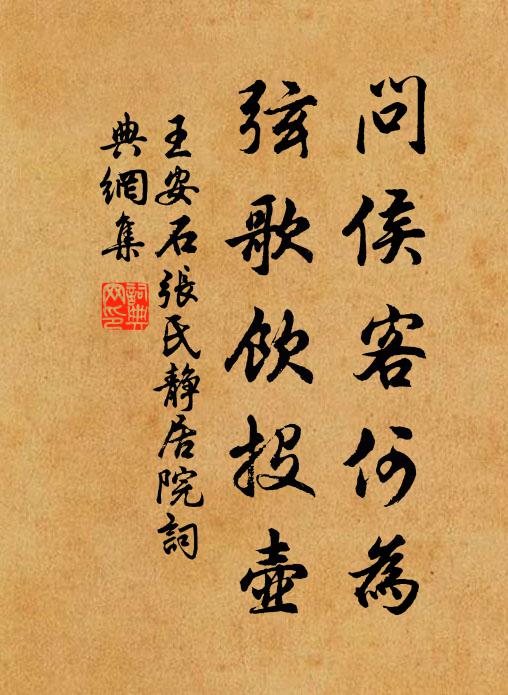 問侯客何為
弦歌飲投壺
王安石張氏靜居院詞
典網集
詞典網印